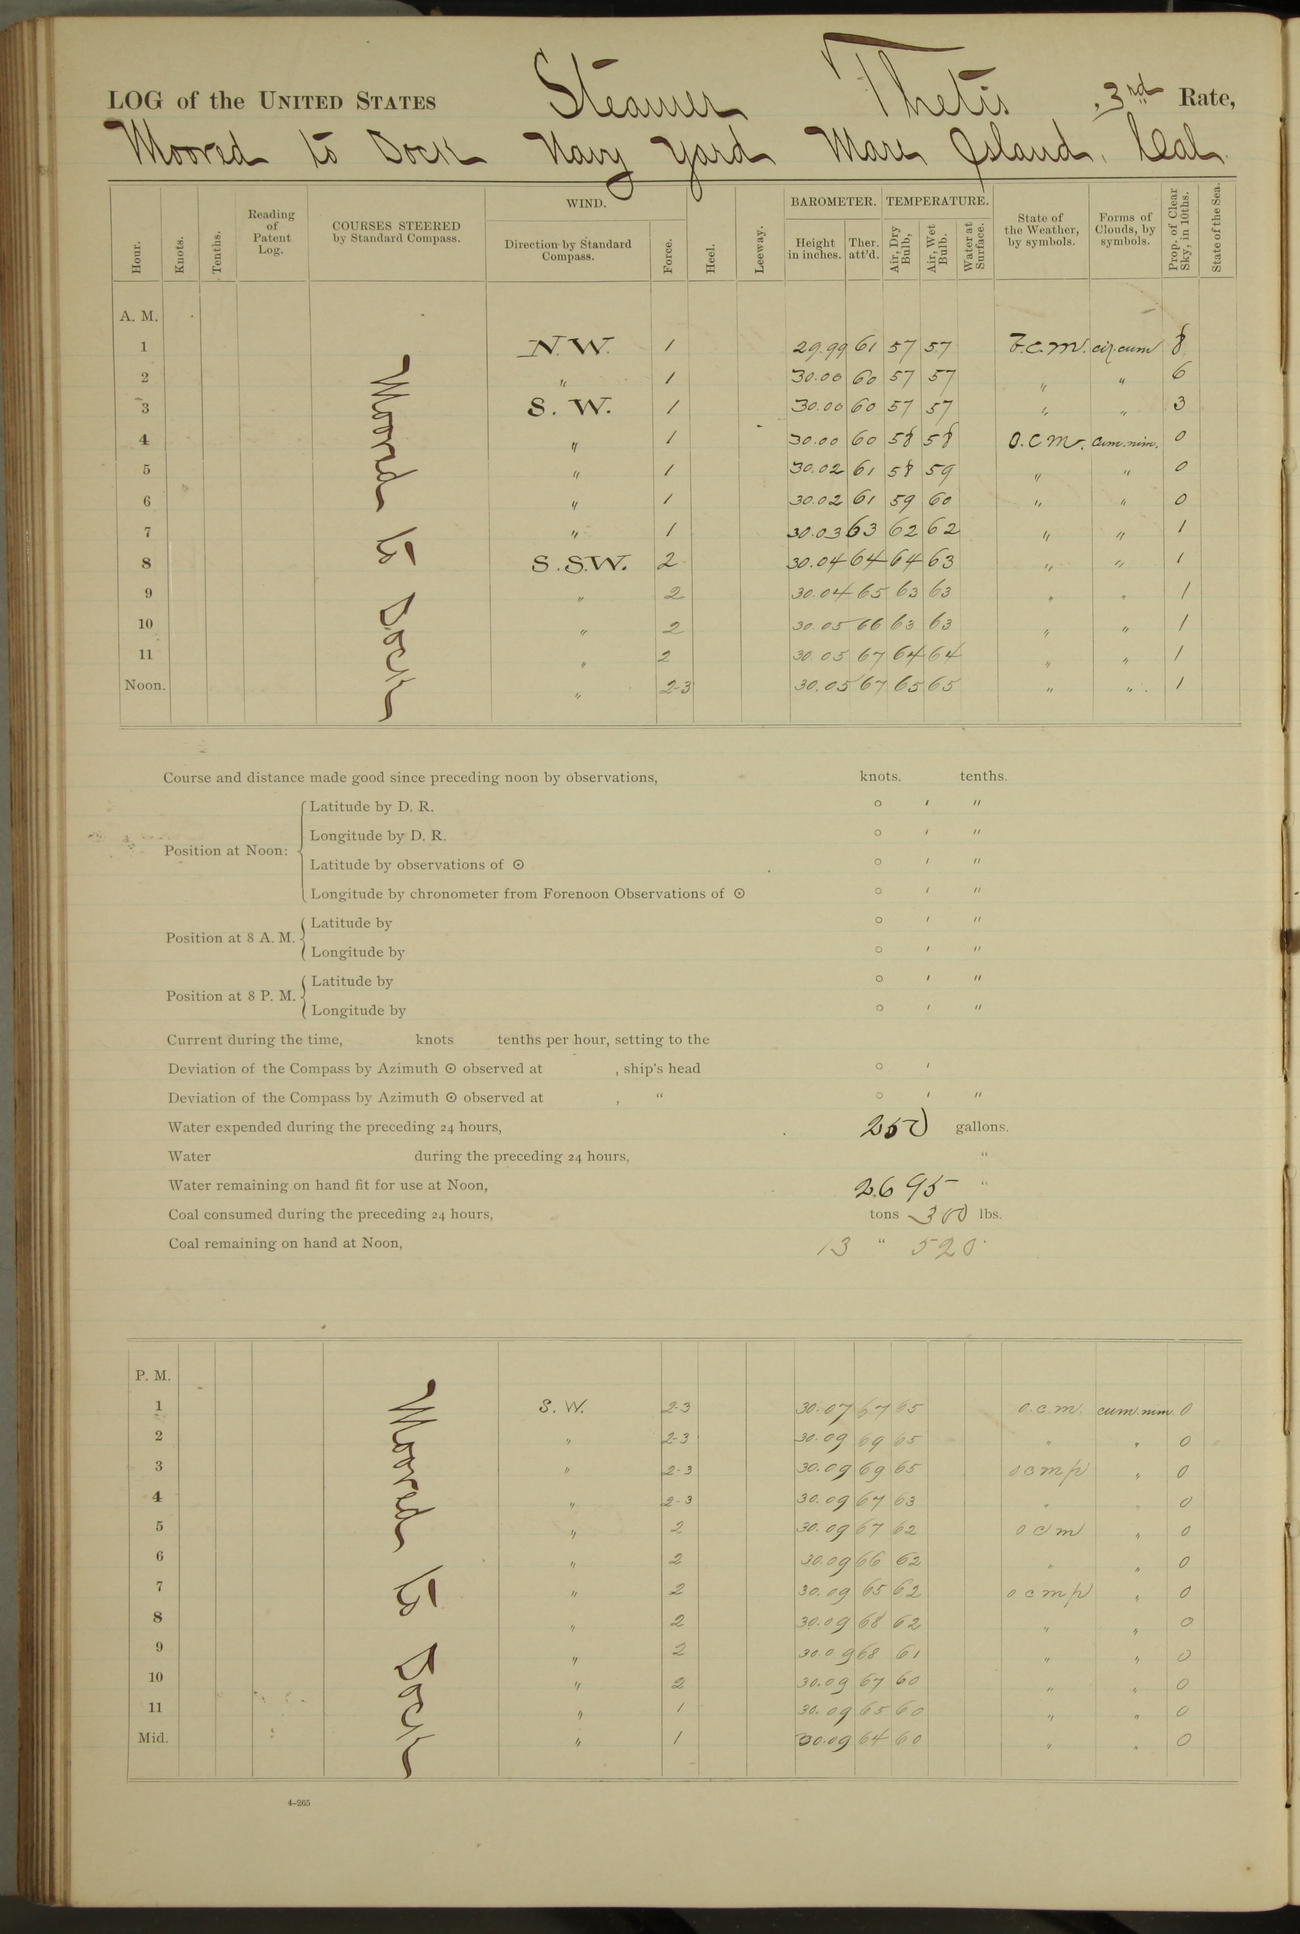 LOG of the UNITED STATES Steamer Thetis, 3rd Rate,
Moored to Dock Navy Yard Mare Island, Cal.
Hour. Knots. Tenths. Reading of Patent Log. COURSES STEERED by Standard Compass. WIND. Direction by Standard Compass. Force. Heel. Leeway. BAROMETER. Height in inches. Ther. att'd. TEMPERATURE. Air, Dry Bulb, Air, Wet Bulb. Water at Surface. State of the Weather, by symbols. Forms of Clouds, by symbols. Prop. of Clear Sky, in 10ths. State of the Sea.
A. M.
Moored to Dock
1 N.W. 1 29.99 61 57 57 F.C.M. cir.cum 8
2 " 1 30.00 60 57 57 " " 6
3 S. W. 1 30.00 60 57 57 " " 3
4 " 1 30.00 60 58 58 O.C.M. cum.nim. 0
5 " 1 30.02 61 58 59 " " 0
6 " 1 30.02 61 59 60 " " 0
7 " 1 30.03 63 62 62 " " 1
8 S.S.W. 2 30.04 64 64 63 " " 1
9 " 2 30.04 65 63 63 " " 1
10 " 2 30.05 66 63 63 " " 1
11 " 2 30.05 67 64 64 " " 1
Noon. " 2-3 30.05 67 65 65 " " 1
Course and distance made good since preceding noon by observations, knots. tenths.
Position at Noon: Latitude by D. R. ° ' "
Longitude by D. R. ° ' "
Latitude by observations of ☉ ° ' "
Longitude by chronometer from Forenoon Observations of ☉ ° ' "
Position at 8 A. M. Latitude by ° ' "
Longitude by ° ' "
Position at 8 P. M. Latitude by ° ' "
Longitude by ° ' "
Current during the time, knots tenths per hour, setting to the
Deviation of the Compass by Azimuth ☉ observed at , ship's head ° '
Deviation of the Compass by Azimuth ☉ observed at , " ° ' "
Water expended during the preceding 24 hours, 250 gallons.
Water during the preceding 24 hours, "
Water remaining on hand fit for use at Noon, 2695 "
Coal consumed during the preceding 24 hours, tons 300 lbs.
Coal remaining on hand at Noon, 13 " 520
P. M.
Moored to Dock
1 S. W. 2-3 30.07 67 65 o.c.m. cum.nim. 0
2 " 2-3 30.09 69 65 " " 0
3 " 2-3 30.09 69 65 o c m p " 0
4 " 2-3 30.09 67 63 " " 0
5 " 2 30.09 67 62 o c m " 0
6 " 2 30.09 66 62 " " 0
7 " 2 30.09 65 62 o c m p " 0
8 " 2 30.09 68 62 " " 0
9 " 2 30.09 68 61 " " 0
10 " 2 30.09 67 60 " " 0
11 " 1 30.09 65 60 " " 0
Mid. " 1 30.09 64 60 " " 0
4-265